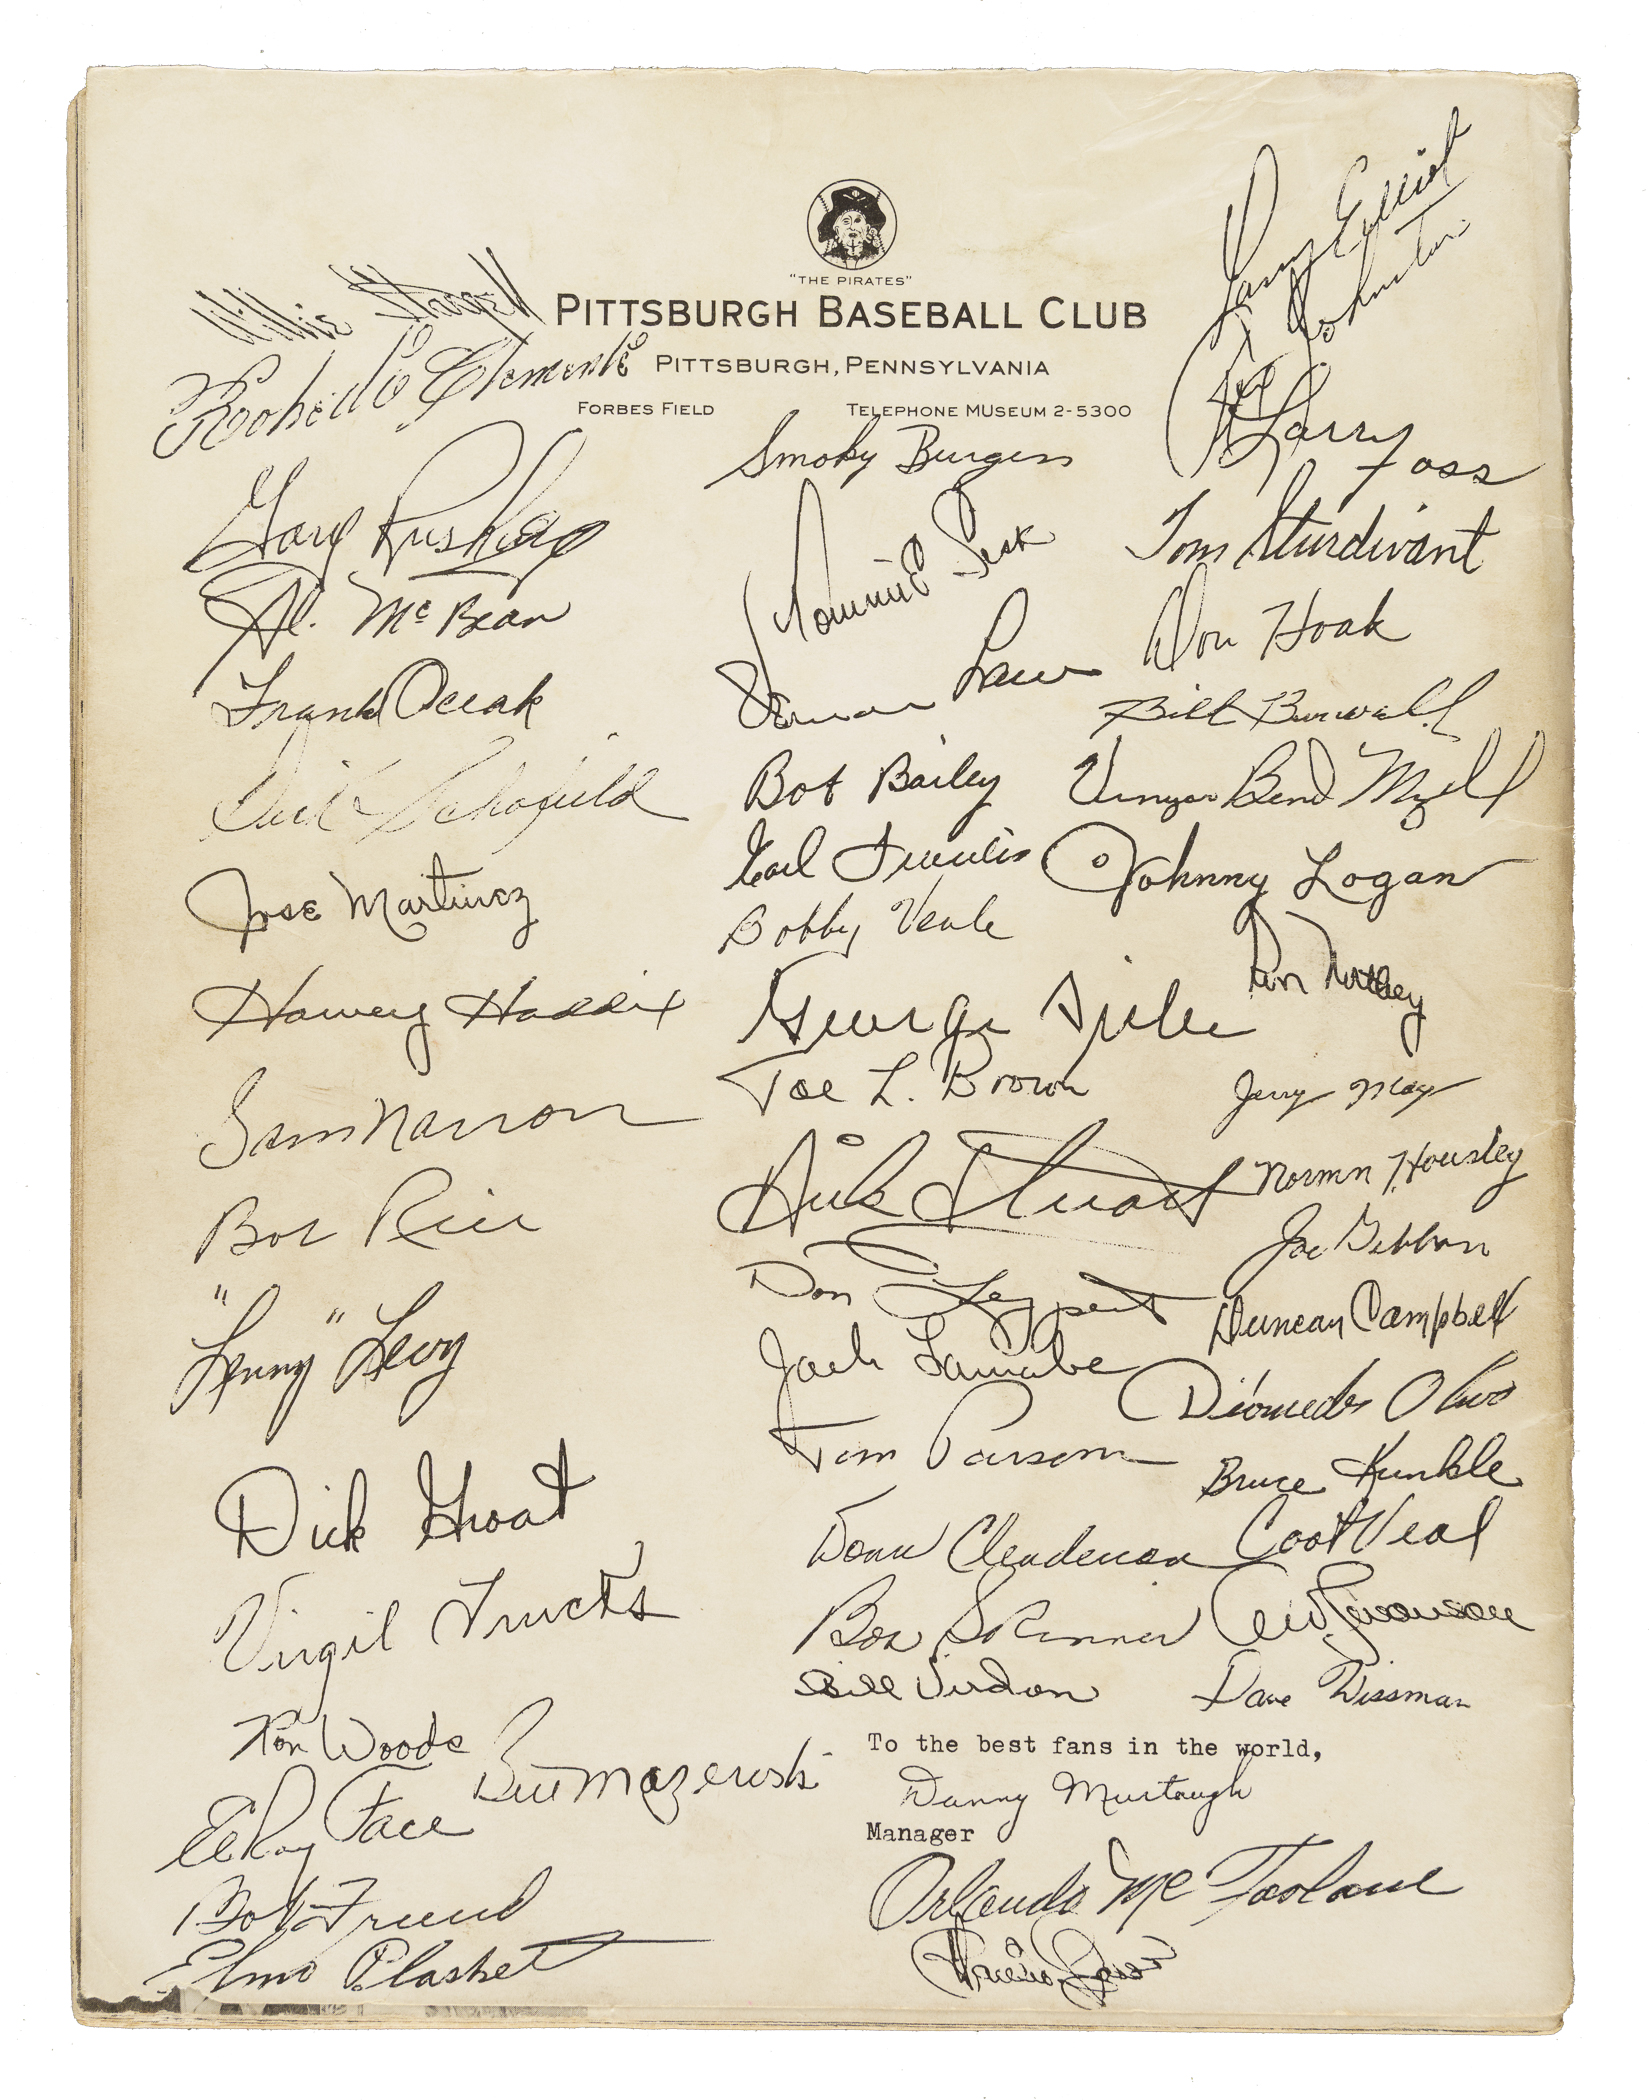 "THE PIRATES"
PITTSBURGH BASEBALL CLUB
PITTSBURGH, PENNSYLVANIA
FORBES FIELD
TELEPHONE MUSEUM 2-5300
Willie Stargell
Roberto Clemente
Gary Rushing
Al. McBean
Frank Oceak
Dick Schofield
Jose Martinez
Harvey Haddix
Sam Narron
Bob Rice
"Lenny" Levy
Dick Groat
Virgil Trucks
Ron Woods
ElRoy Face
Bob Friend
Elmo Plaskett
Bill Mazeroski
Smoky Burgess
Tommie Sisk
Vernon Law
Bob Bailey
Earl Francis
Bobby Veale
George Sisler
Joe L. Brown
Dick Stuart
Don Leppert
Jack Lamabe
Tom Parsons
Donn Clendenon
Bob Skinner
Bill Virdon
Larry Elliot
Rex Johnston
Larry Foss
Tom Sturdivant
Don Hoak
Bill Burwell
Vinegar Bend Mizell
Johnny Logan
Ron
Jerry May
Norman T. Housley
Joe Gibbon
Duncan Campbell
Diomedes Olivo
Bruce Kunkle
Coot Veal
Dave Wissman
To the best fans in the world,
Danny Murtaugh
Manager
Orlando McFarlane